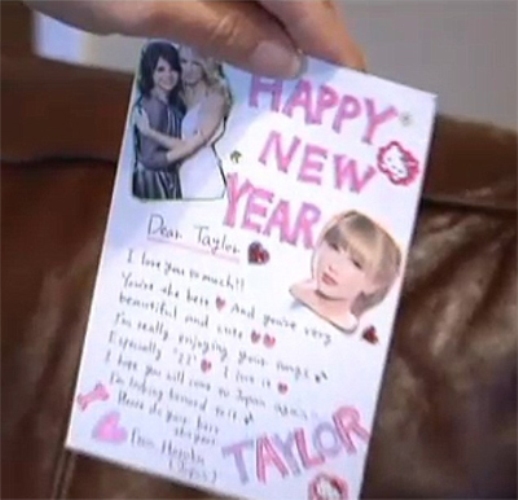 HAPPY
NEW
YEAR
Dear Taylor
I love you so much!!
You're the best And you're very
beautiful and cute
I'm really enjoying your songs
Especially "22" I love it
I hope you will come to Japan again
I'm looking forward to it
Please do your best
From
(Japan)
TAYLOR